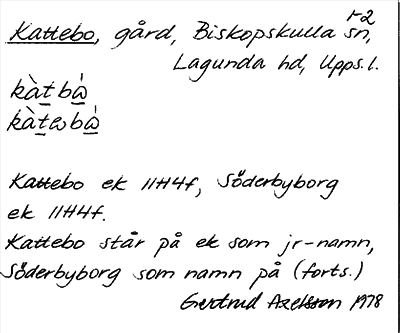 1-2
Kattebo, gård, Biskopskulla sn,
Lagunda hd, Upps. l.
kàt̠bὼ̠
kàt̠ωbὼ̠
Kattebo ek 11H4f, Söderbyborg
ek 11H4f.
Kattebo står på ek som jr-namn,
Söderbyborg som namn på (forts.)
Gertrud Axelsson 1978